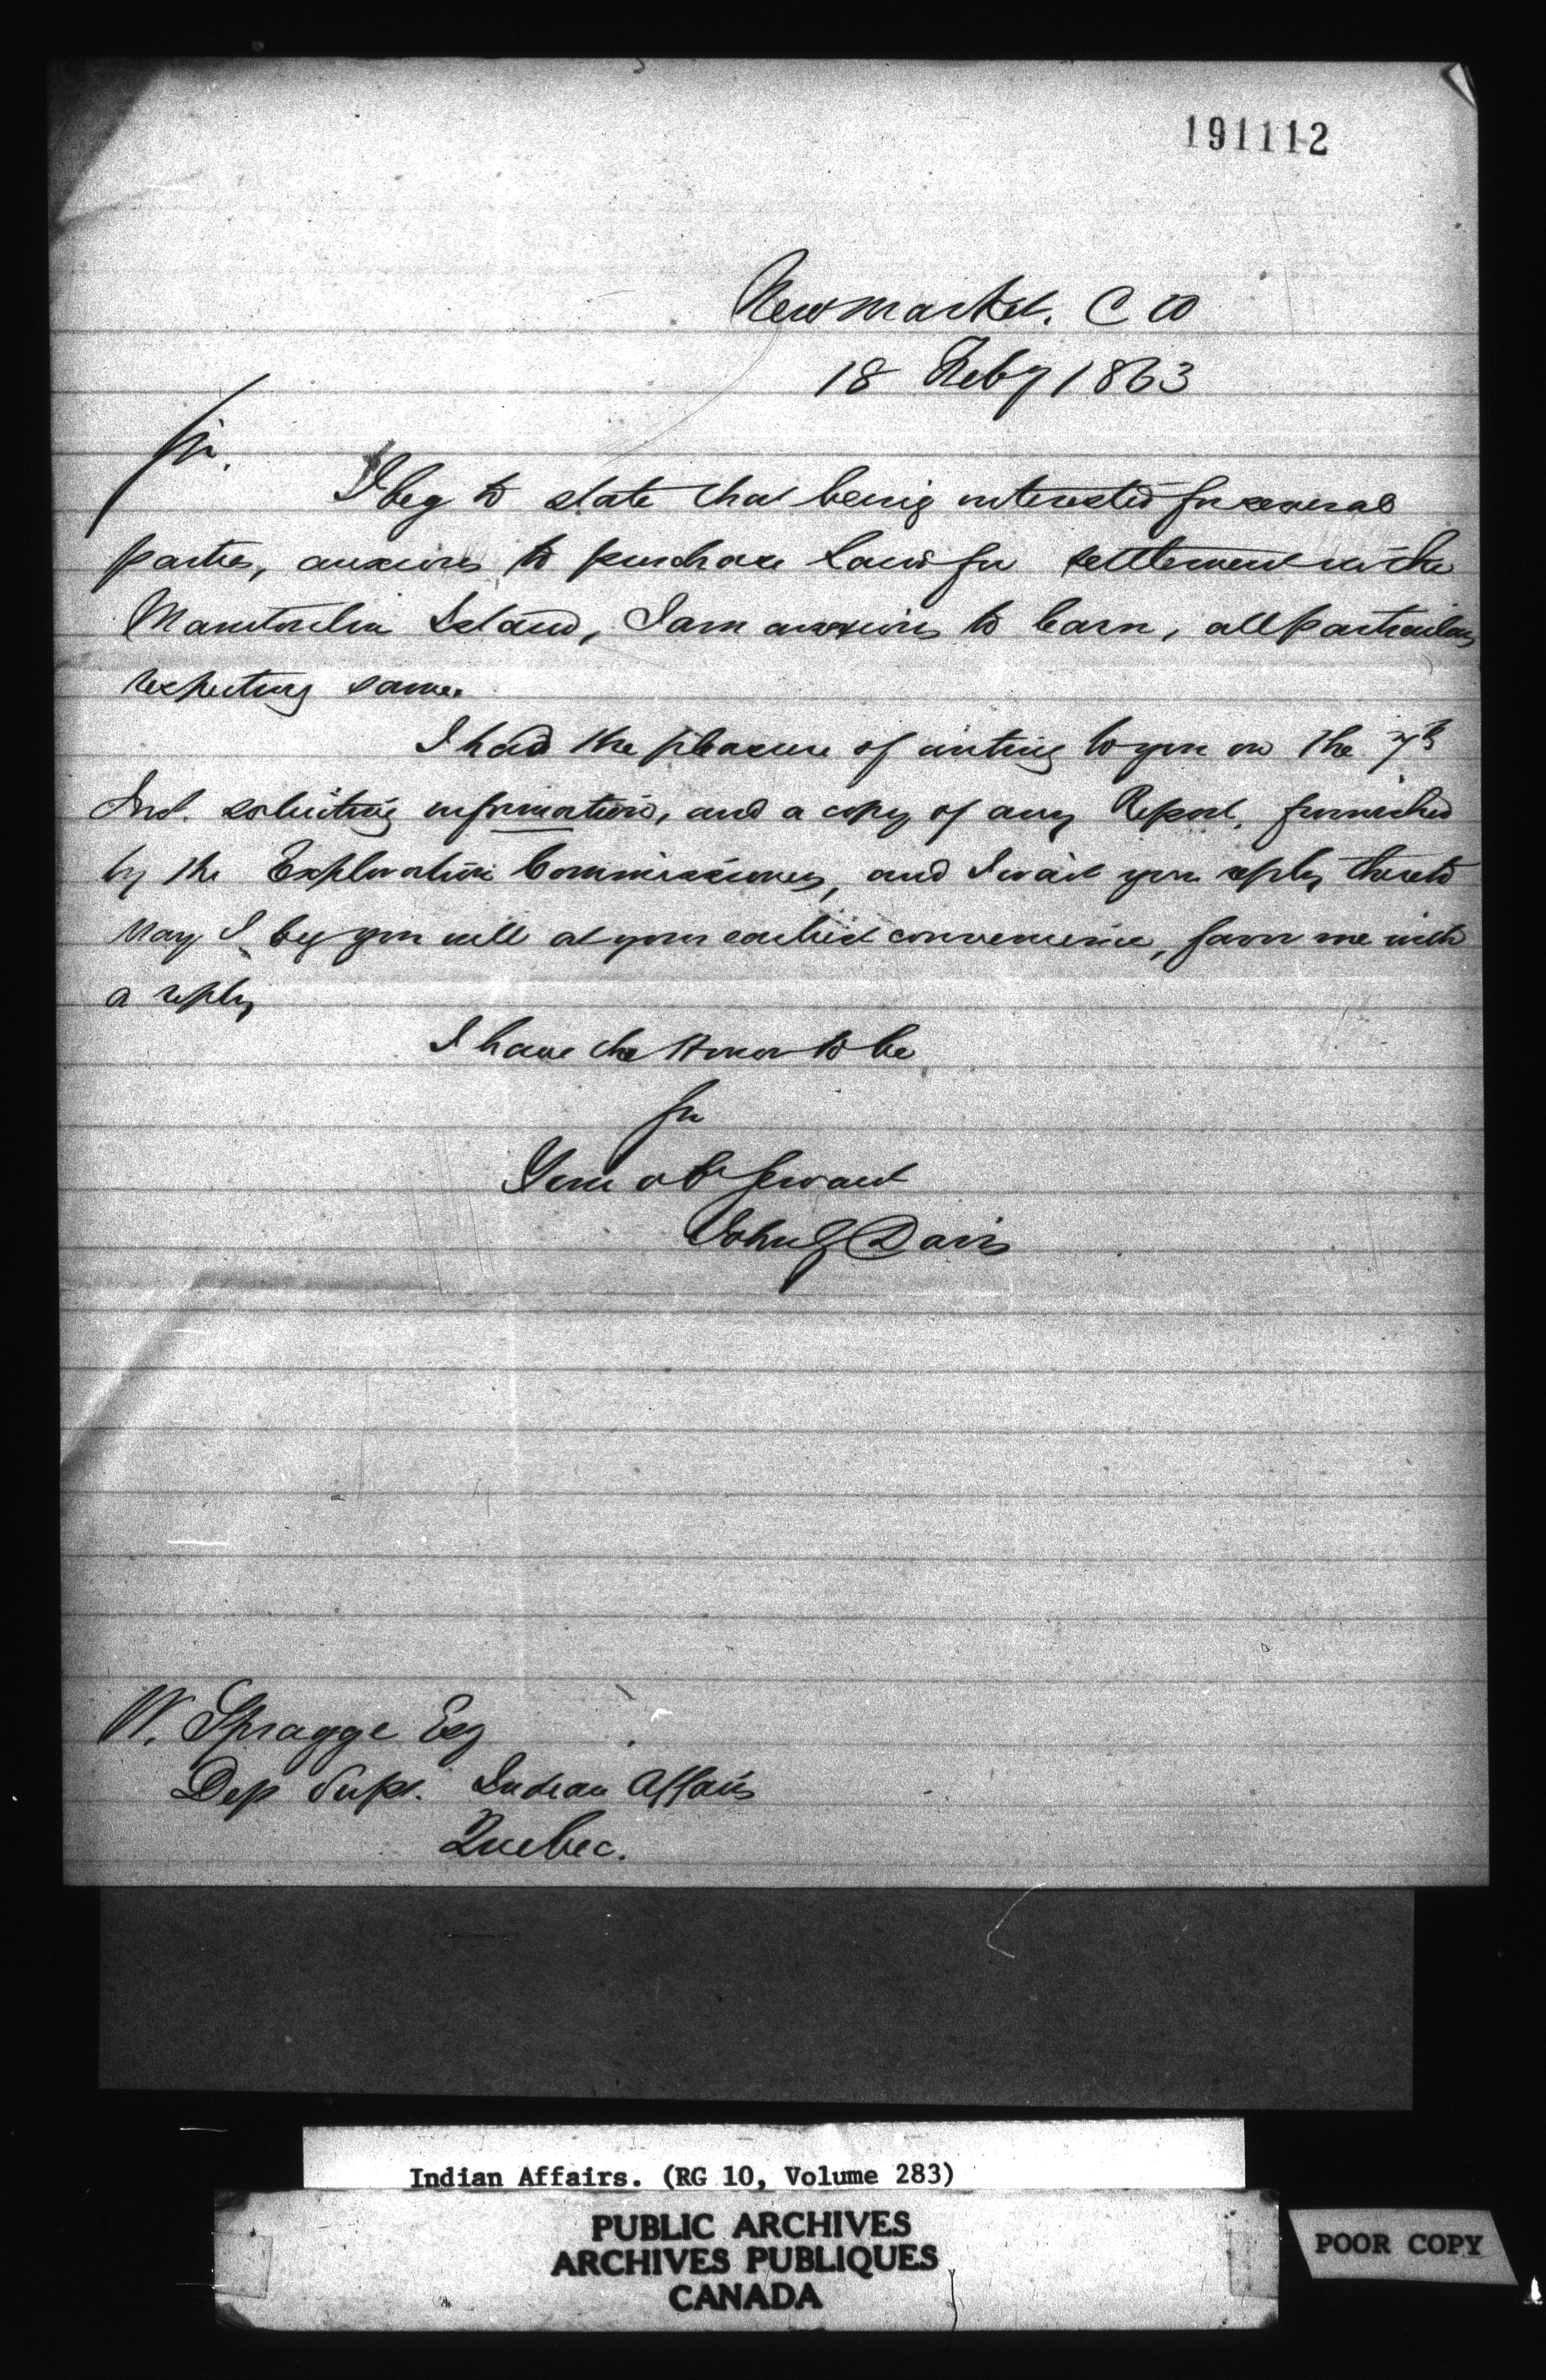 191112
Newmarket. C W
18 Feby 1863
Sir.
I beg to state that being interested for several
parties, anxious to purchase Land for settlement in the
Manitoulin Island, I am anxious to learn, all particulars
respecting same.
I had the pleasure of writing to you on the 7th
Inst. soliciting information, and a copy of any Report, furnished
by the Exploration Commissioners, and I wait your reply thereto
May I beg you will at your earliest convenience, favor me with
a reply
I have the Honor to be
Sir
Your obt Servant
John Davis
W. Spragge Esq
Dep Supt. Indian Affairs
Quebec.
Indian Affairs. (RG 10, Volume 283)
PUBLIC ARCHIVES
ARCHIVES PUBLIQUES
CANADA
POOR COPY